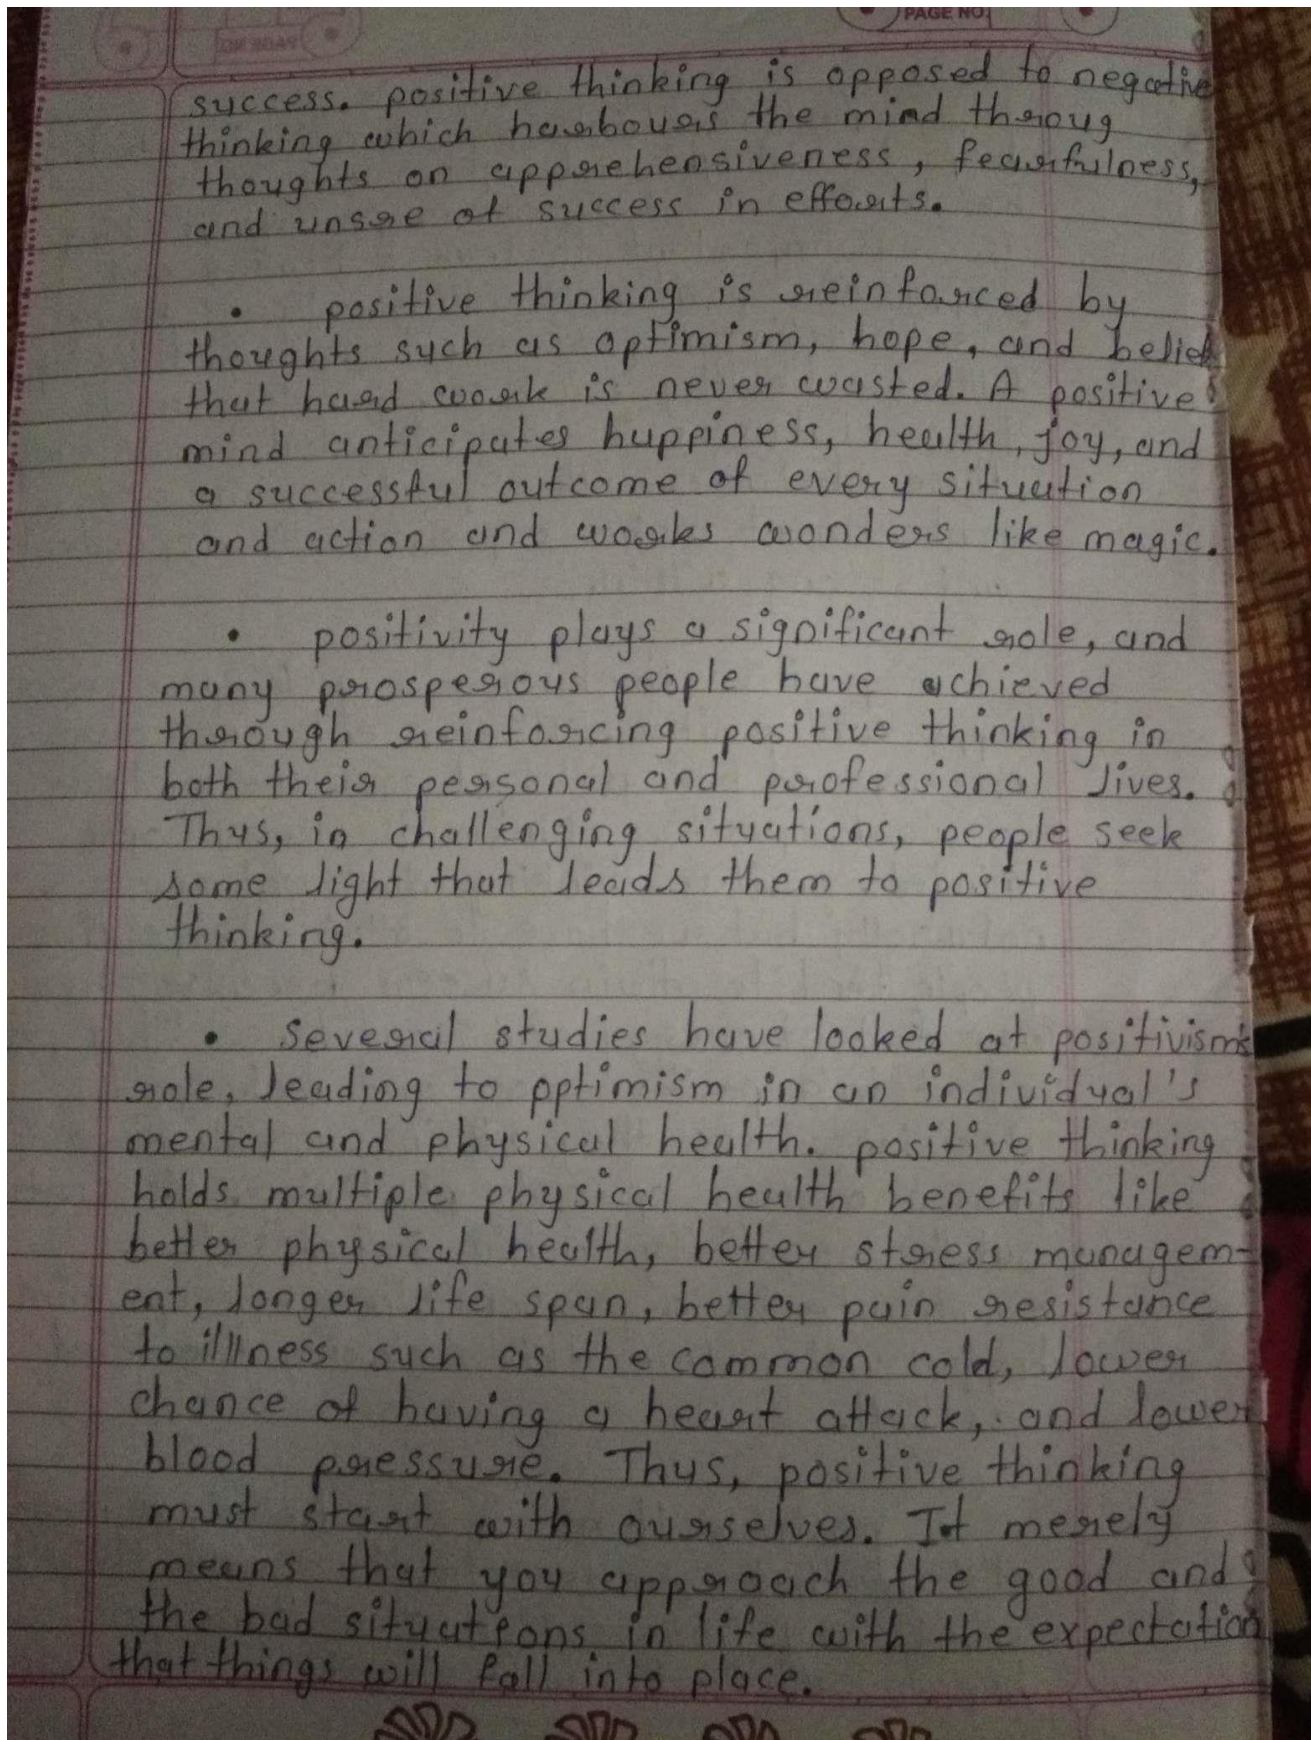 PAGE NO.
success. positive thinking is opposed to negative
thinking which harbours the mind throug
thoughts on apprehensiveness, fearfulness,
and unsre of success in efforts.
• positive thinking is reinforced by
thoughts such as optimism, hope, and belief
that hard work is never wasted. A positive
mind anticipates huppiness, health, joy, and
a successful outcome of every situation
and action and works wonders like magic.
• positivity plays a significant role, and
many prosperous people have achieved
through reinforcing positive thinking in
both their personal and professional lives.
Thus, in challenging situations, people seek
some light that leads them to positive
thinking.
• Several studies have looked at positivism's
role, leading to optimism in an individual's
mental and physical health. positive thinking
holds multiple physical health benefits like
better physical health, better stress managem-
ent, longer life span, better pain resistance
to illlness such as the common cold, lower
chance of having a heart attack, and lower
blood pressure. Thus, positive thinking
must start with ourselves. It merely
means that you approach the good and
the bad situations in life with the expectation
that things will fall into place.